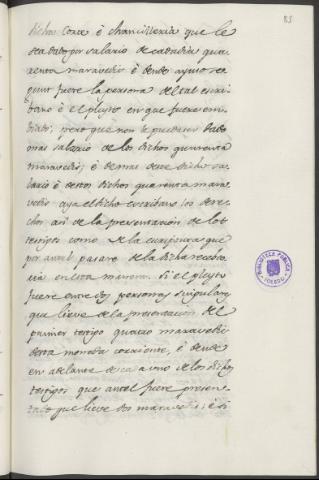 85
dichos Corte è chancilleria que le
sea dado por salario de cada dia qua
renta maravedis è dende ayuso se
gunt fuere la persona del tal escri
bano è el pleyto en que fuere em
biado; pero que non le pueda ser dado
mas salario de los dichos quarenta
maravedis; è demas deste dicho sa
lario è destos dichos quarenta mara
vedis aya el dicho escribano los dere
chos asi de la presentacion de los
testigos como de la escriptura que
por ante el pasare de la dicha recebto
ria en esta manera. Si el pleyto
fuere entre dos personas singulares
que lieve de la presentacion del
primer testigo quatro maravedis
desta moneda corriente, è dende
en adelante de cada uno de los dichos
testigos que antel fuere presen
tado que lieve dos maravedis; è si
BIBLIOTECA PUBLICA
TOLEDO